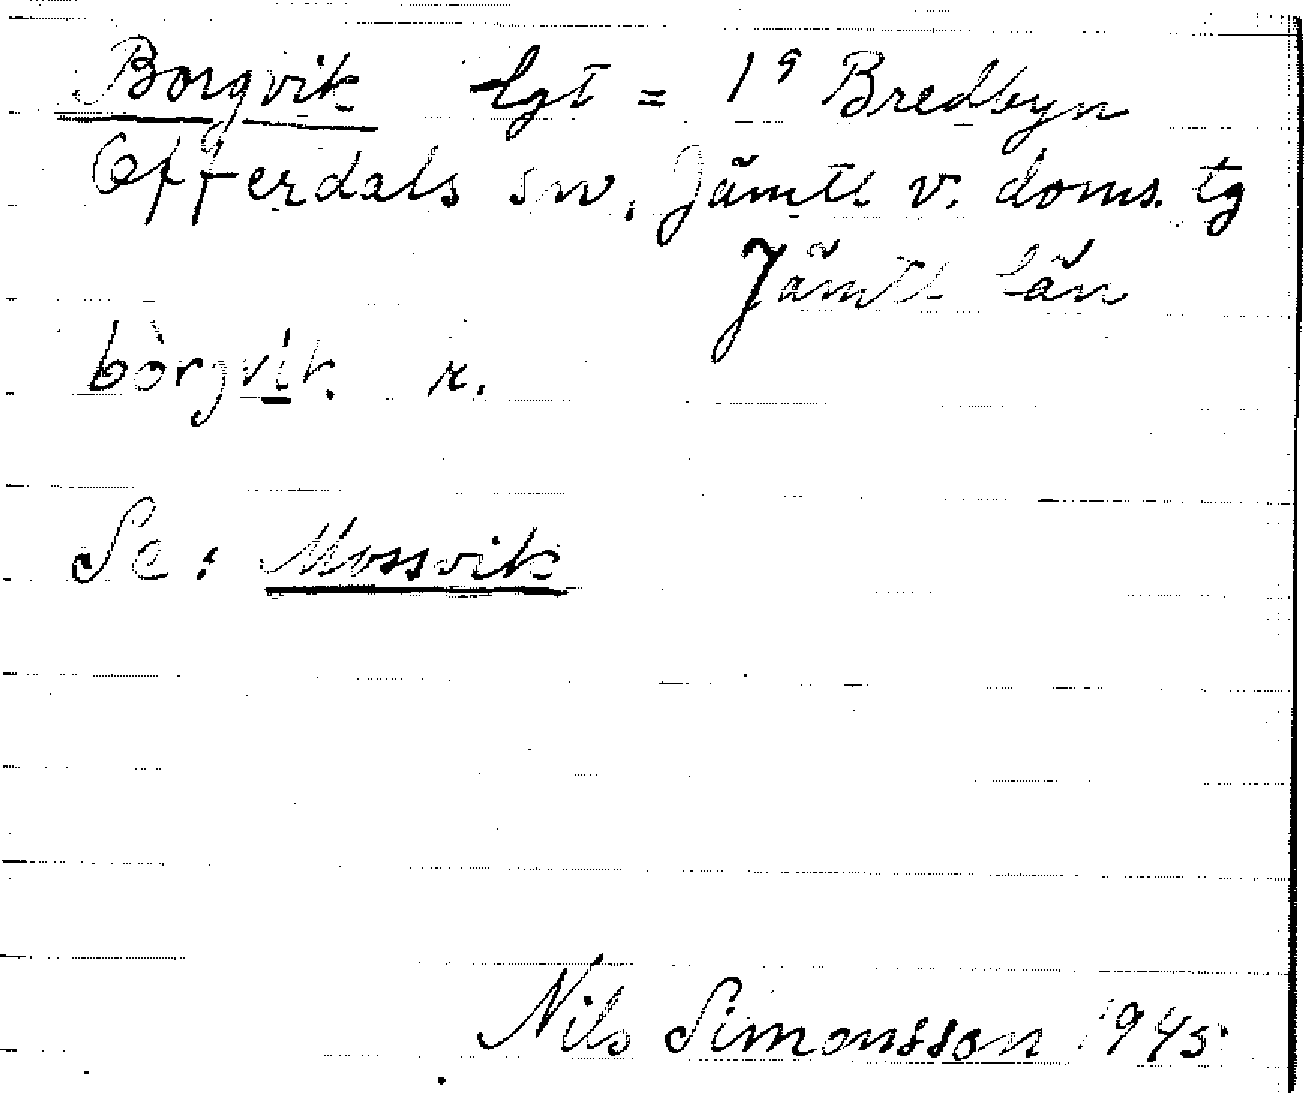 Borgvik lgt = 1⁹ Bredbyn
Offerdals sn, Jämtl v. doms. tg
Jämtl län
bòrgvik. r.
Se: Mossvik
Nils Simonsson 1945